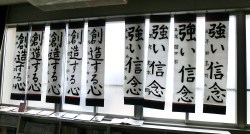 創造する心
創造する心
創造する心
創造する心
強い信念
強い信念
強い信念
強い信念